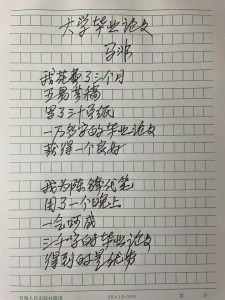 大学毕业论文
马非
我花费了三个月
五易其稿
写了三十页纸
一万多字的毕业论文
获得一个良好
我为陈锋代笔
用了一个晚上
一气呵成
三千字的毕业论文
得到的是优秀